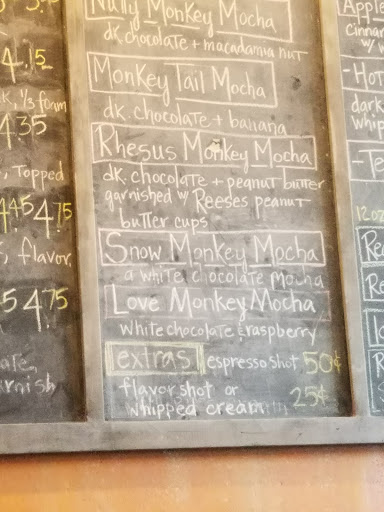 5.
4.15
k, 1/3 foam
4.35
, Topped
4.45 4.75
, flavor
5 4.75
Nutty Monkey Mocha
dk. chocolate + macadamia nut
Monkey Tail Mocha
dk. chocolate + banana
Rhesus Monkey Mocha
dk. chocolate + peanut butter
garnished w/ Reeses peanut
butter cups
Snow Monkey Mocha
a white chocolate mocha
Love Monkey Mocha
white chocolate & raspberry
extras espresso shot 50¢
flavor shot or
whipped cream 25¢
Apple
cinna
w/
-Hot
dark
whip
-Te
12oz
Re
Re